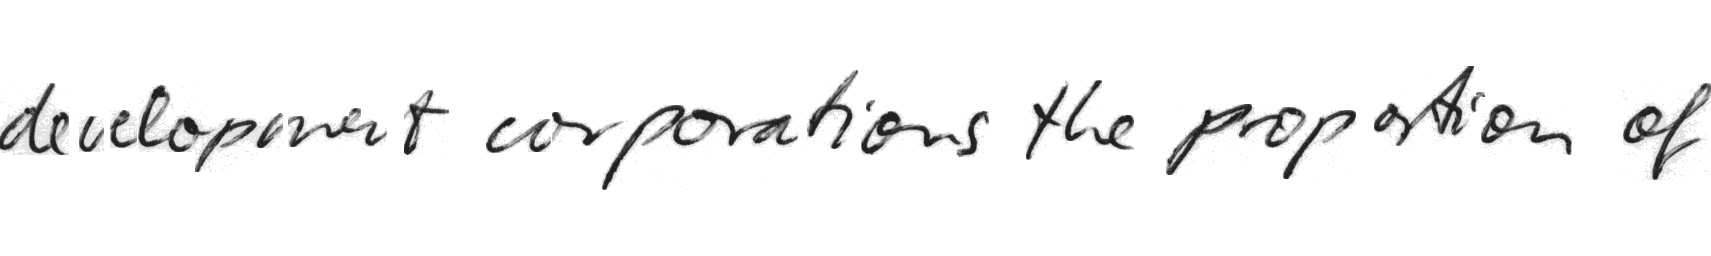 development corporations the proportion of